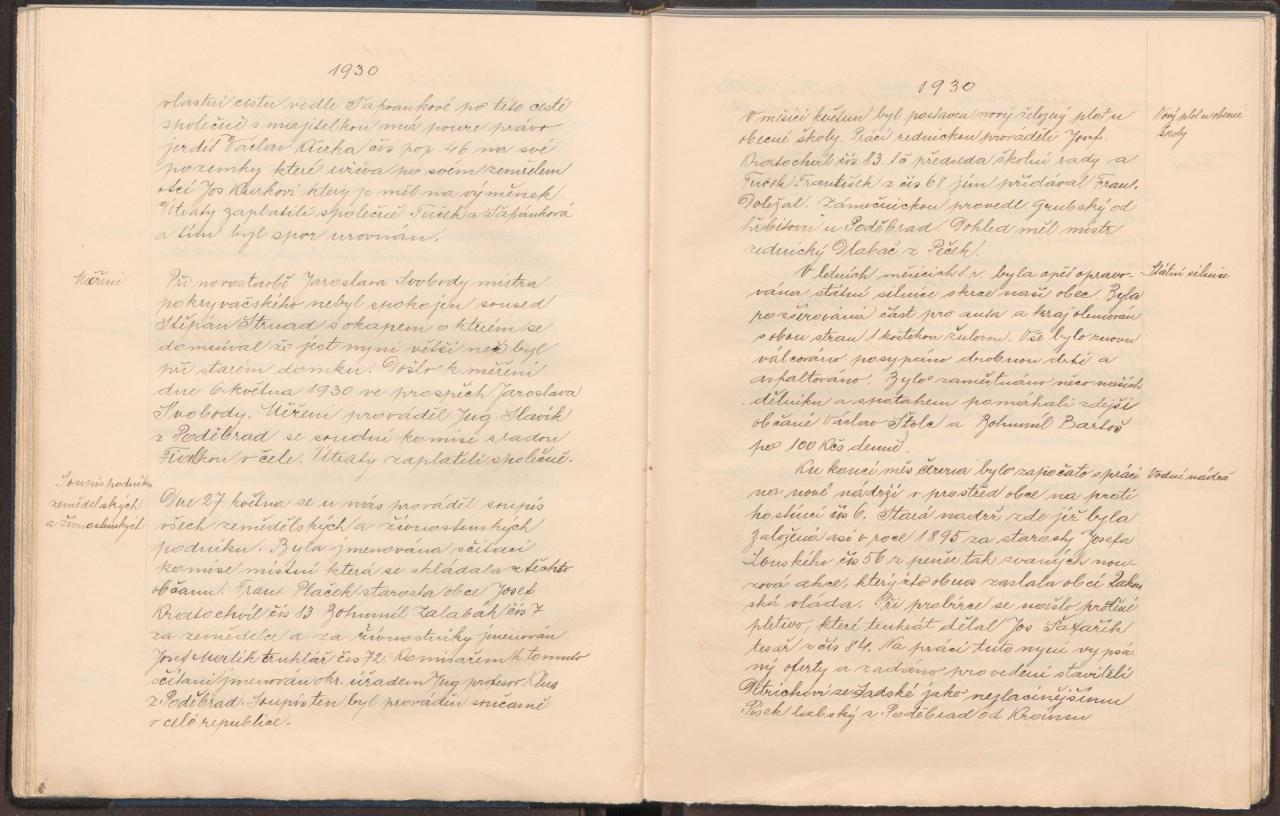 1930
vlastní cestu vedle Šafránkové po této cestě
společně s majitelkou má pouze právo
jezdit Václav Kürha čís pop. 46 na své
pozemky které užívá po svém zemřelém
otci Jos který je měl na výměnek.
Útraty zaplatili společně Tuček a Šafránková
a tím byl spor urovnán.
Měření
Při novostavbě Jaroslava Svobody mistra
pokryvačského nebyl spokojen soused
Štěpán Strnad s okapem o kterém se
domníval že jest nyní větší než byl
při starém domku. Došlo k měření
dne 6 května 1930 ve prospěch Jaroslava
Svobody. Měření prováděl Ing Slavík
z Poděbrad se soudní komisí s radou
Fiedlkou v čele. Útraty zaplatili společně.
Soupis podniku
zemědělských
a živnostenských
Dne 27 května se u nás prováděl soupis
všech zemědělských a živnostenských
podniku. Byla jmenována sčítací
komise místní která se skládala z těchto
občanu. Fran. Plaček starosta obce Josef
Kratochvíl čís 83 Bohumíl Zalabák čís 7
za zemědělce a za živnostníky jmenován
Josef Merlík truhlář čís 72. Komisařem k tomuto
sčítání jmenován okr. úřadem Ing profesor
z Poděbrad. Soupis ten byl prováděn současně
v celé republice.
1930
V měsíci květnu byl postaven nový železný plot u
obecné školy. Práci zednickou prováděli Josef.
Kratochvíl čís 83. t.č předseda školní rady a
Tuček František z čís 68 jim přidával Fran.
Doležal. Zámečnickou provedl Grubský od
hřbitova u Poděbrad. Dohled měl mistr
zednický Dlabač z Peček.
Nový plot u obecné
školy
V letních měsících t. r. byla opět opravo-
vána státní silnice skrze naší obec. Byla
rozšířována část pro auta a kraj olemován
s obou stran 1 kostkou žulovou. Vše bylo znovu
válcováno posypáno drobnou drtí a
asfaltováno. Bylo zaměstnáno něco našich
dělníku a s potahem pomáhali zdejší
občané Václav Štolc a Bohumíl Bartoš
po 100 Kčs denně.
Státní silnice
Ku konci měs června bylo započato s prácí
na nové nádrži v prostřed obce na proti
hostinci čís 6. Stará nadrž zde již byla
založená asi v roce 1895 za starosty Josefa
čís 56 z peněz tak zvaných nou-
zová akce, který žto obnos zaslala obci Rakou
ská vláda. Při probírce se našlo proutěné
pletivo, které tenkrát dělal Jos. Šafařík
tesař z čís 84. Na práci tuto nyní vypsa
ný oferty a zadáno provedení staviteli
Ditrichovi ze Sadské jako nejlacinějšímu
Písek labský z Poděbrad od
Vodní nádrž